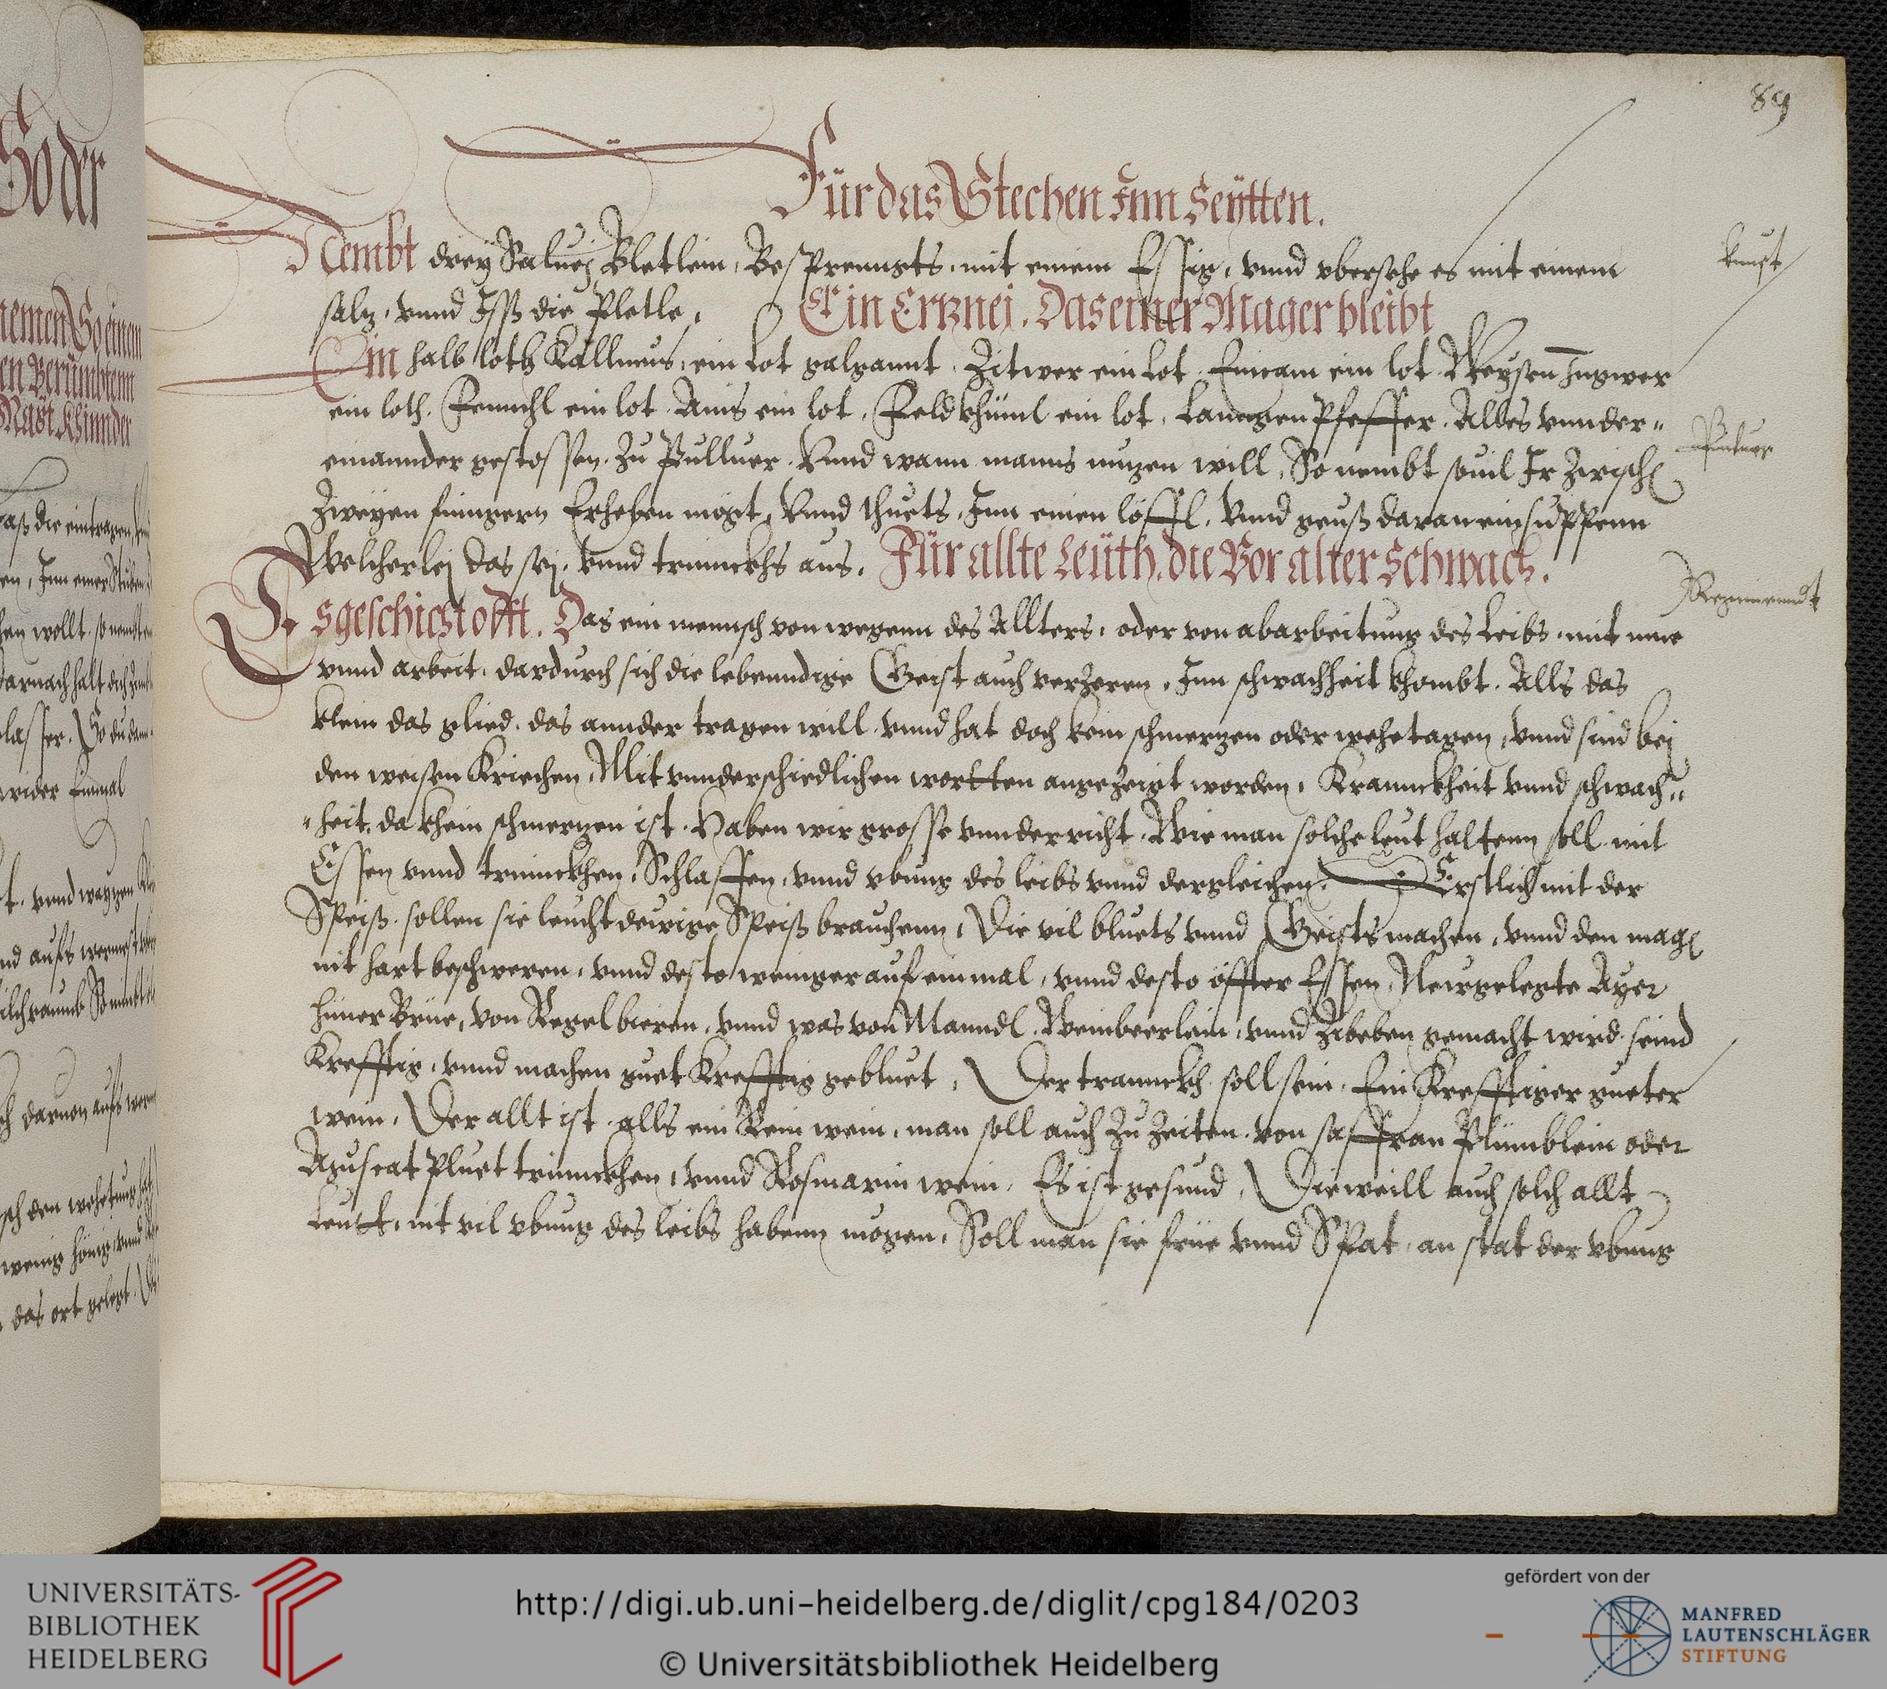 89
Für das Stechen Inn Seÿtten.
Nembt dreÿ Saluej Bletlein, Besprenngts, mit einem Essig, vnnd vbersehe es mit einem
kunst
salz, vnnd Iss die Pletle,
Ein Ertznei. Das einer Mager bleibt
Ein halb loth Kallmus, ein Lot galgannt, Zitwer ein Lot, Enicam ein lot, Weÿsen Ingwer
ein loth, Fennchl ein lot, Anis ein lot, Feldkhüml ein lot, Lanngen Pfeffer, Alles vnnder=
Puluer
einannder gestossen, zu Pulluer, Vnnd wann manns nuzen will, So nembt souil Ir zwischen
Zweÿen fingern Erheben mögt, Vnnd thuets, Inn einen löffl, Vnnd geuß daran ein suppenn
Welcherlej das sej, vnnd trinnckhs aus,
Für allte Leüth, die Vor alter Schwach.
Regiemendt
Es geschicht offt. Das ein mennsch von wegenn des Allters, oder von abarbeitung des Leibs, mit mue
vnnd arbeit, dardurch sich die lebenndige Geist auch verzeren, Inn schwachheit khombt, Alls das
klein das glied, das annder tragen will, vnnd hat doch kein schmerzen oder wehetagen, vnnd sind bej
den weisen Kriechen, Mit vnnderschiedlichen wortten angezeigt worden, Krannckheit vnnd schwach=
=heit, da khein schmerzen ist, Haben wir grosse vnnderricht, Wie man solche leut haltenn soll, mit
Essen vnnd trinnckhen, Schlaffen, vnnd vbung des leibs vnnd dergleichen, Erstlich mit der
Speiß, sollen sie leucht dewige Speiß brauchenn, Die vil bluets vnnd Geists machen, vnnd den magen
nit hart beschweren, vnnd desto weniger auf einmal, vnnd desto öffter Essen, Newgelegte Ayer
hüner Brüe, von Kegelbieren, vnnd was von Manndl, Weinbeerlein, vnnd Zibeben gemacht wird, seind
Krefftig, vnnd machen guet Krefftig gebluet, Der tranncKh, soll sein, Ein Krefftiger gueter
wein, Der allt ist, alls ein Rein wein, man soll auch zu zeiten, von saffran Plümblein oder
Muscat Pluet trinnckhen, vnnd Rosmarin wein, Es ist gesund, Dieweill auch solch allt
leutt, nit vil vbung des leibs habenn mögen, Soll man sie frue vnnd Spat, an stat der vbung
So der
UNIVERSITÄTS-
BIBLIOTHEK
HEIDELBERG
http://digi.ub.uni-heidelberg.de/diglit/cpg184/0203
© Universitätsbibliothek Heidelberg
gefördert von der
MANFRED
LAUTENSCHLÄGER
STIFTUNG